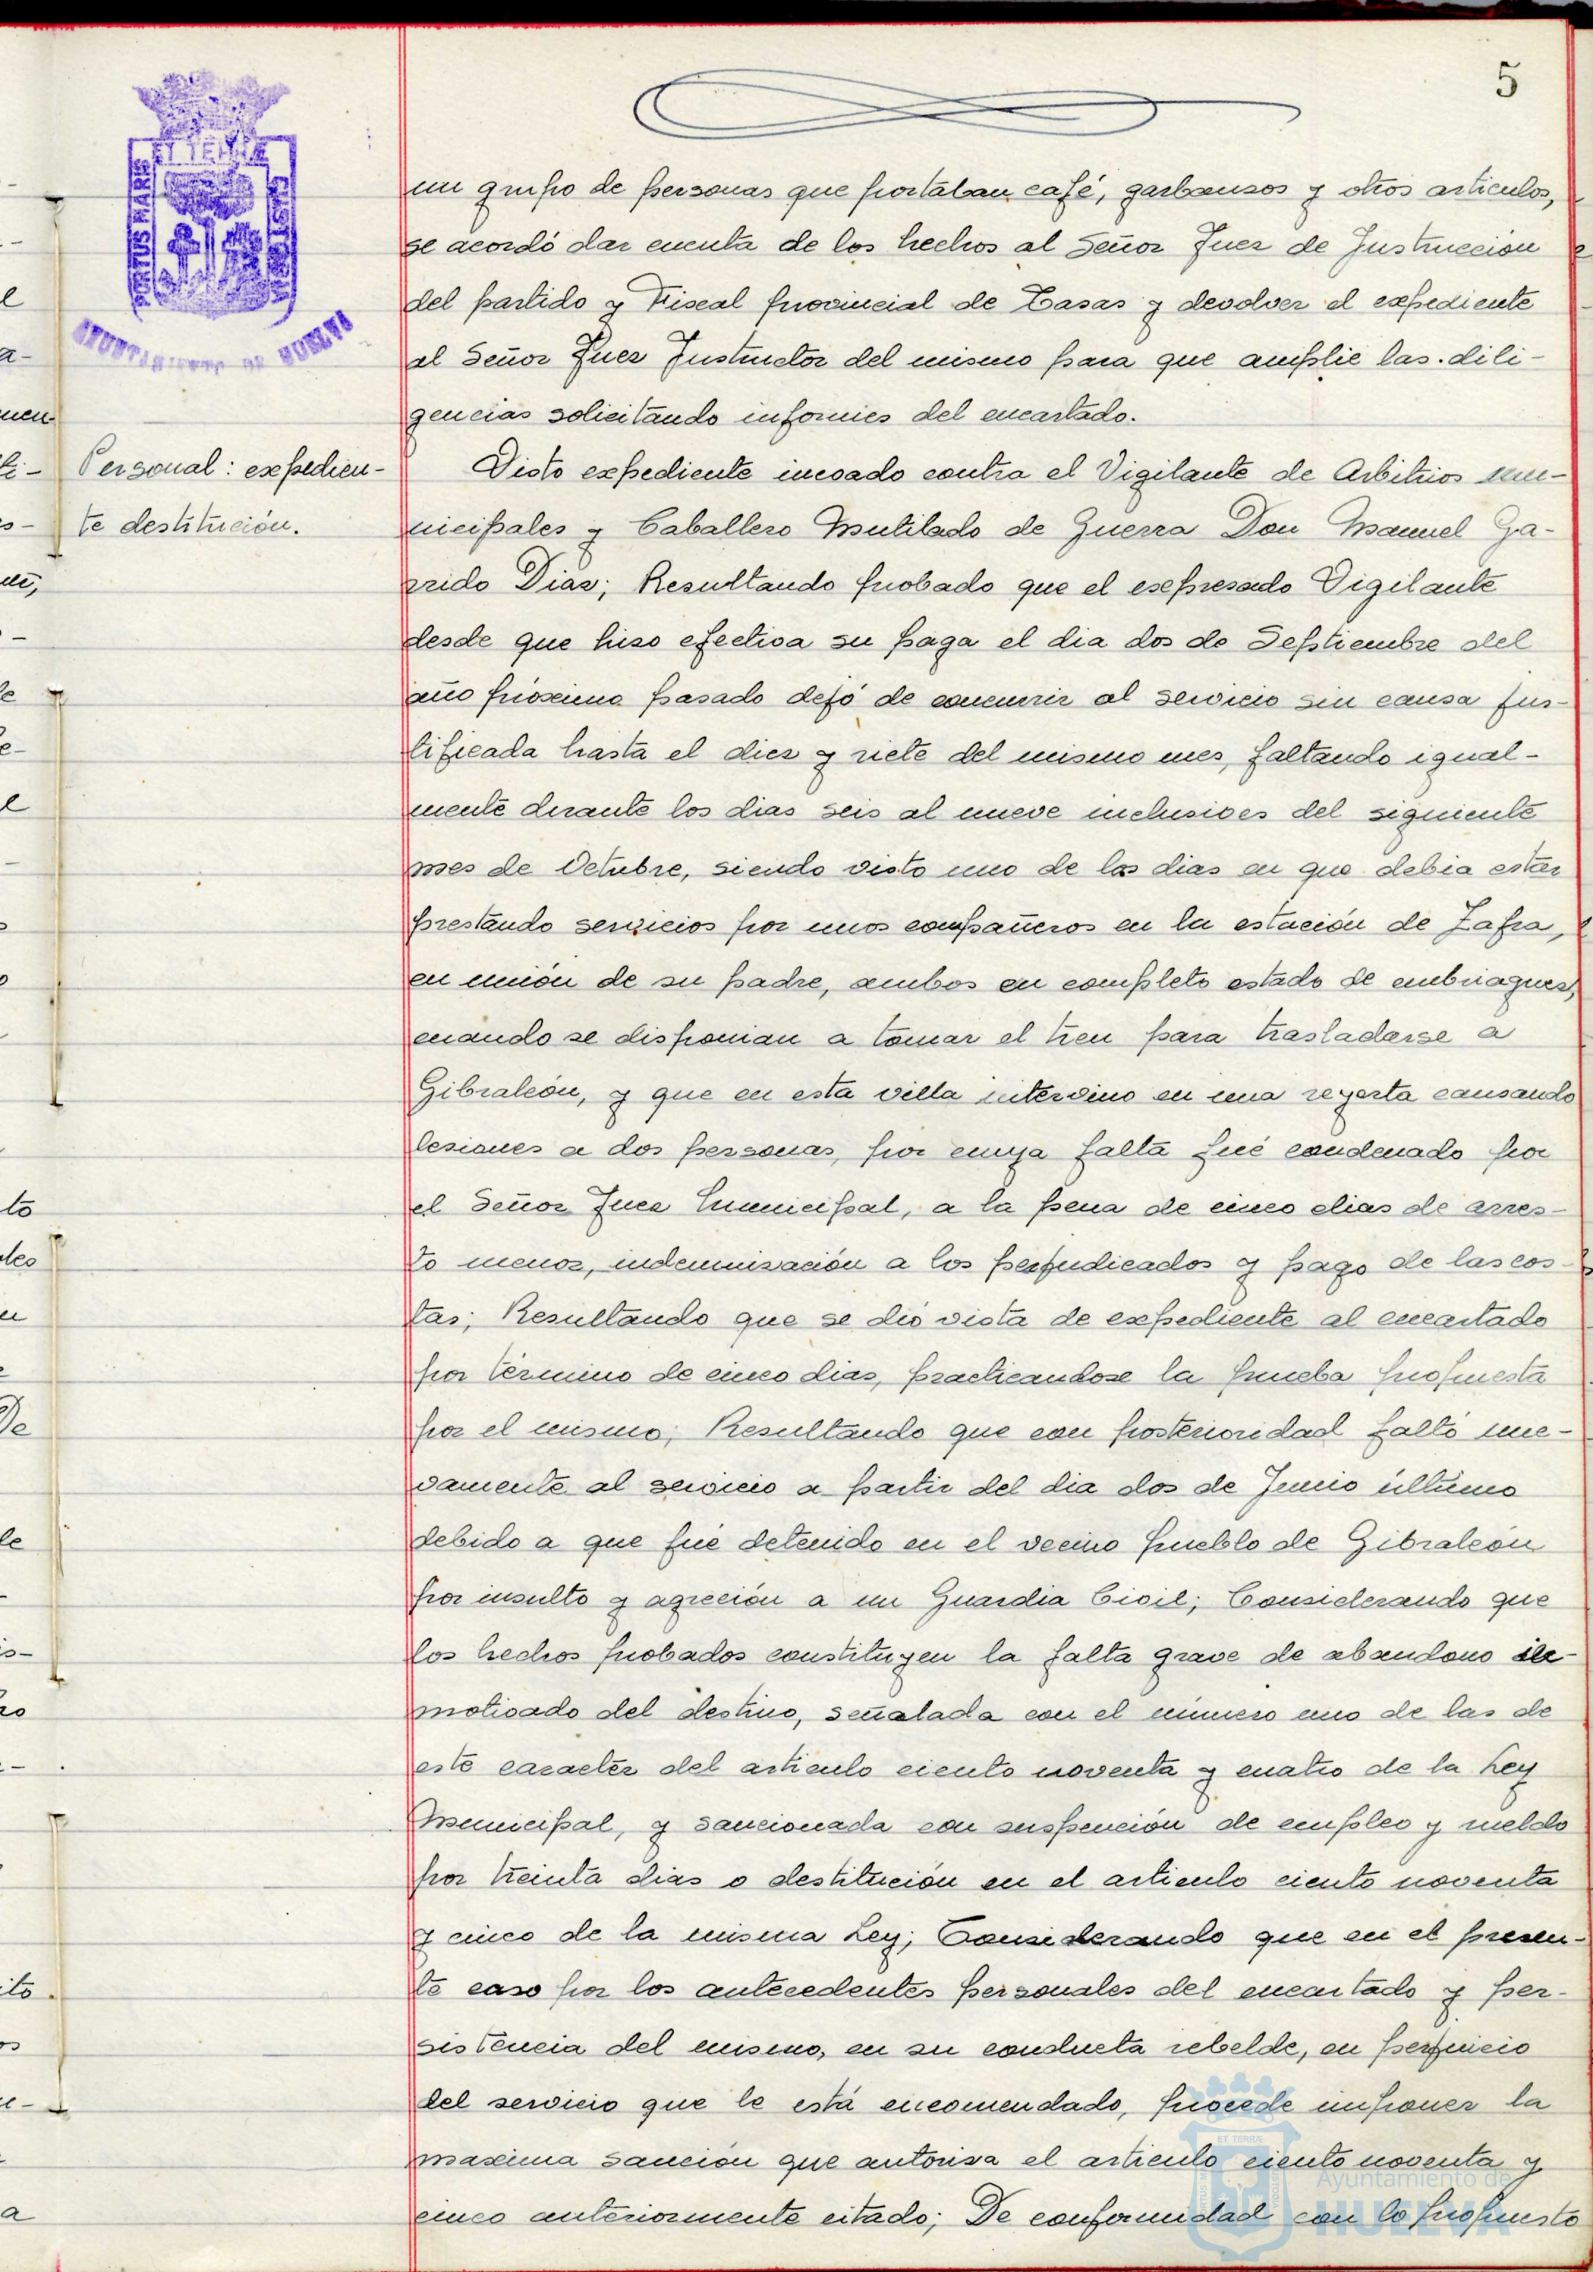 5
ET TERRÆ
PORTUS MARIS
CUSTODIA
AYUNTAMIENTO DE HUELVA
un grupo de personas que portaban café, garbansos y otros articulos,
se acordó dar cuenta de los hechos al Señor Juez de Instruccion
del partido y Fiscal provincial de Tasas y devolver el expediente
al Señor Juez Instructor del mismo para que amplie las dili-
gencias solicitando informes del encartado.
Personal: expedien-
te destitución.
Visto expediente incoado contra el Vigilante de Arbitrios mu-
nicipales y Caballero Mutilado de Guerra Don Manuel Ga-
rrido Dias; Resultando probado que el esepresado Vigilante
desde que hiso efectiva su paga el dia dos de Septiembre del
año próximo pasado dejó de concurrir al servicio sin causa jus-
tificada hasta el dies y siete del mismo mes, faltando igual-
mente durante los dias seis al nueve inclusives del siguiente
mes de Octubre, siendo visto uno de los dias en que debia estar
prestando servicios por unos compañeros en la estación de Zafra,
en unión de su padre, ambos en completo estado de embriagues,
cuando se disponian a tomar el tren para trasladarse a
Gibraleón, y que en esta villa intervino en una reyerta causando
lesiones a dos personas, por cuya falta fué condenado por
el Señor Juez Municipal, a la pena de cinco dias de arres-
to menor, indemnisación a los perjudicados y pago de las cos-
tas; Resultando que se dió vista de expediente al encartado
por término de cinco dias, practicandose la prueba propuesta
por el mismo; Resultando que con posterioridad faltó nue-
vamente al servicio a partir del dia dos de Junio último
debido a que fué detenido en el vecino pueblo de Gibraleón
por insulto y agreción a un Guardia Civil; Considerando que
los hechos probados constituyen la falta grave de abandono in-
motivado del destino, señalada con el número uno de las de
este caracter del articulo ciento noventa y cuatro de la Ley
Municipal, y sancionada con suspención de empleo y sueldo
por treinta dias o destitución en el articulo ciento noventa
y cinco de la misma Ley; Considerando que en el presen-
te caso por los antecedentes personales del encartado y per-
sistencia del mismo, en su conducta rebelde, en perjuicio
del servicio que le está encomendado, procede imponer la
maxima sanción que autorisa el articulo ciento noventa y
cinco anteriormente citado; De conformidad con lo propuesto
Ayuntamiento de
HUELVA